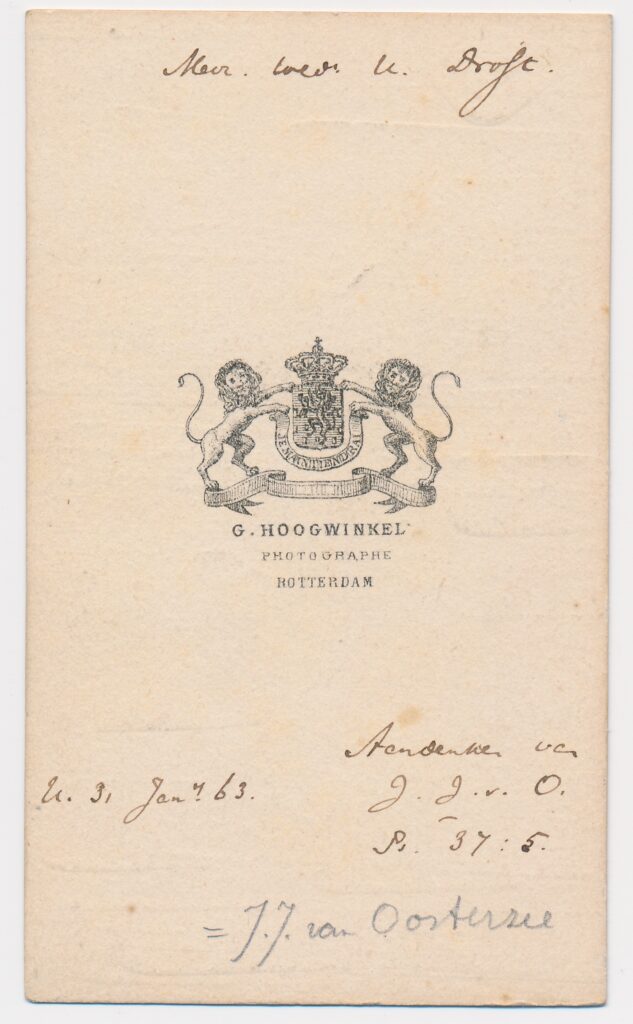 Mevr. wed. U. Drost.
JE MAINTIENDRAI
G. HOOGWINKEL
PHOTOGRAPHE
ROTTERDAM
Aandenken van
U. 31 Jany 63.
J. J. v. O.
Ps. 37:5.
= J. J. van Oosterzee